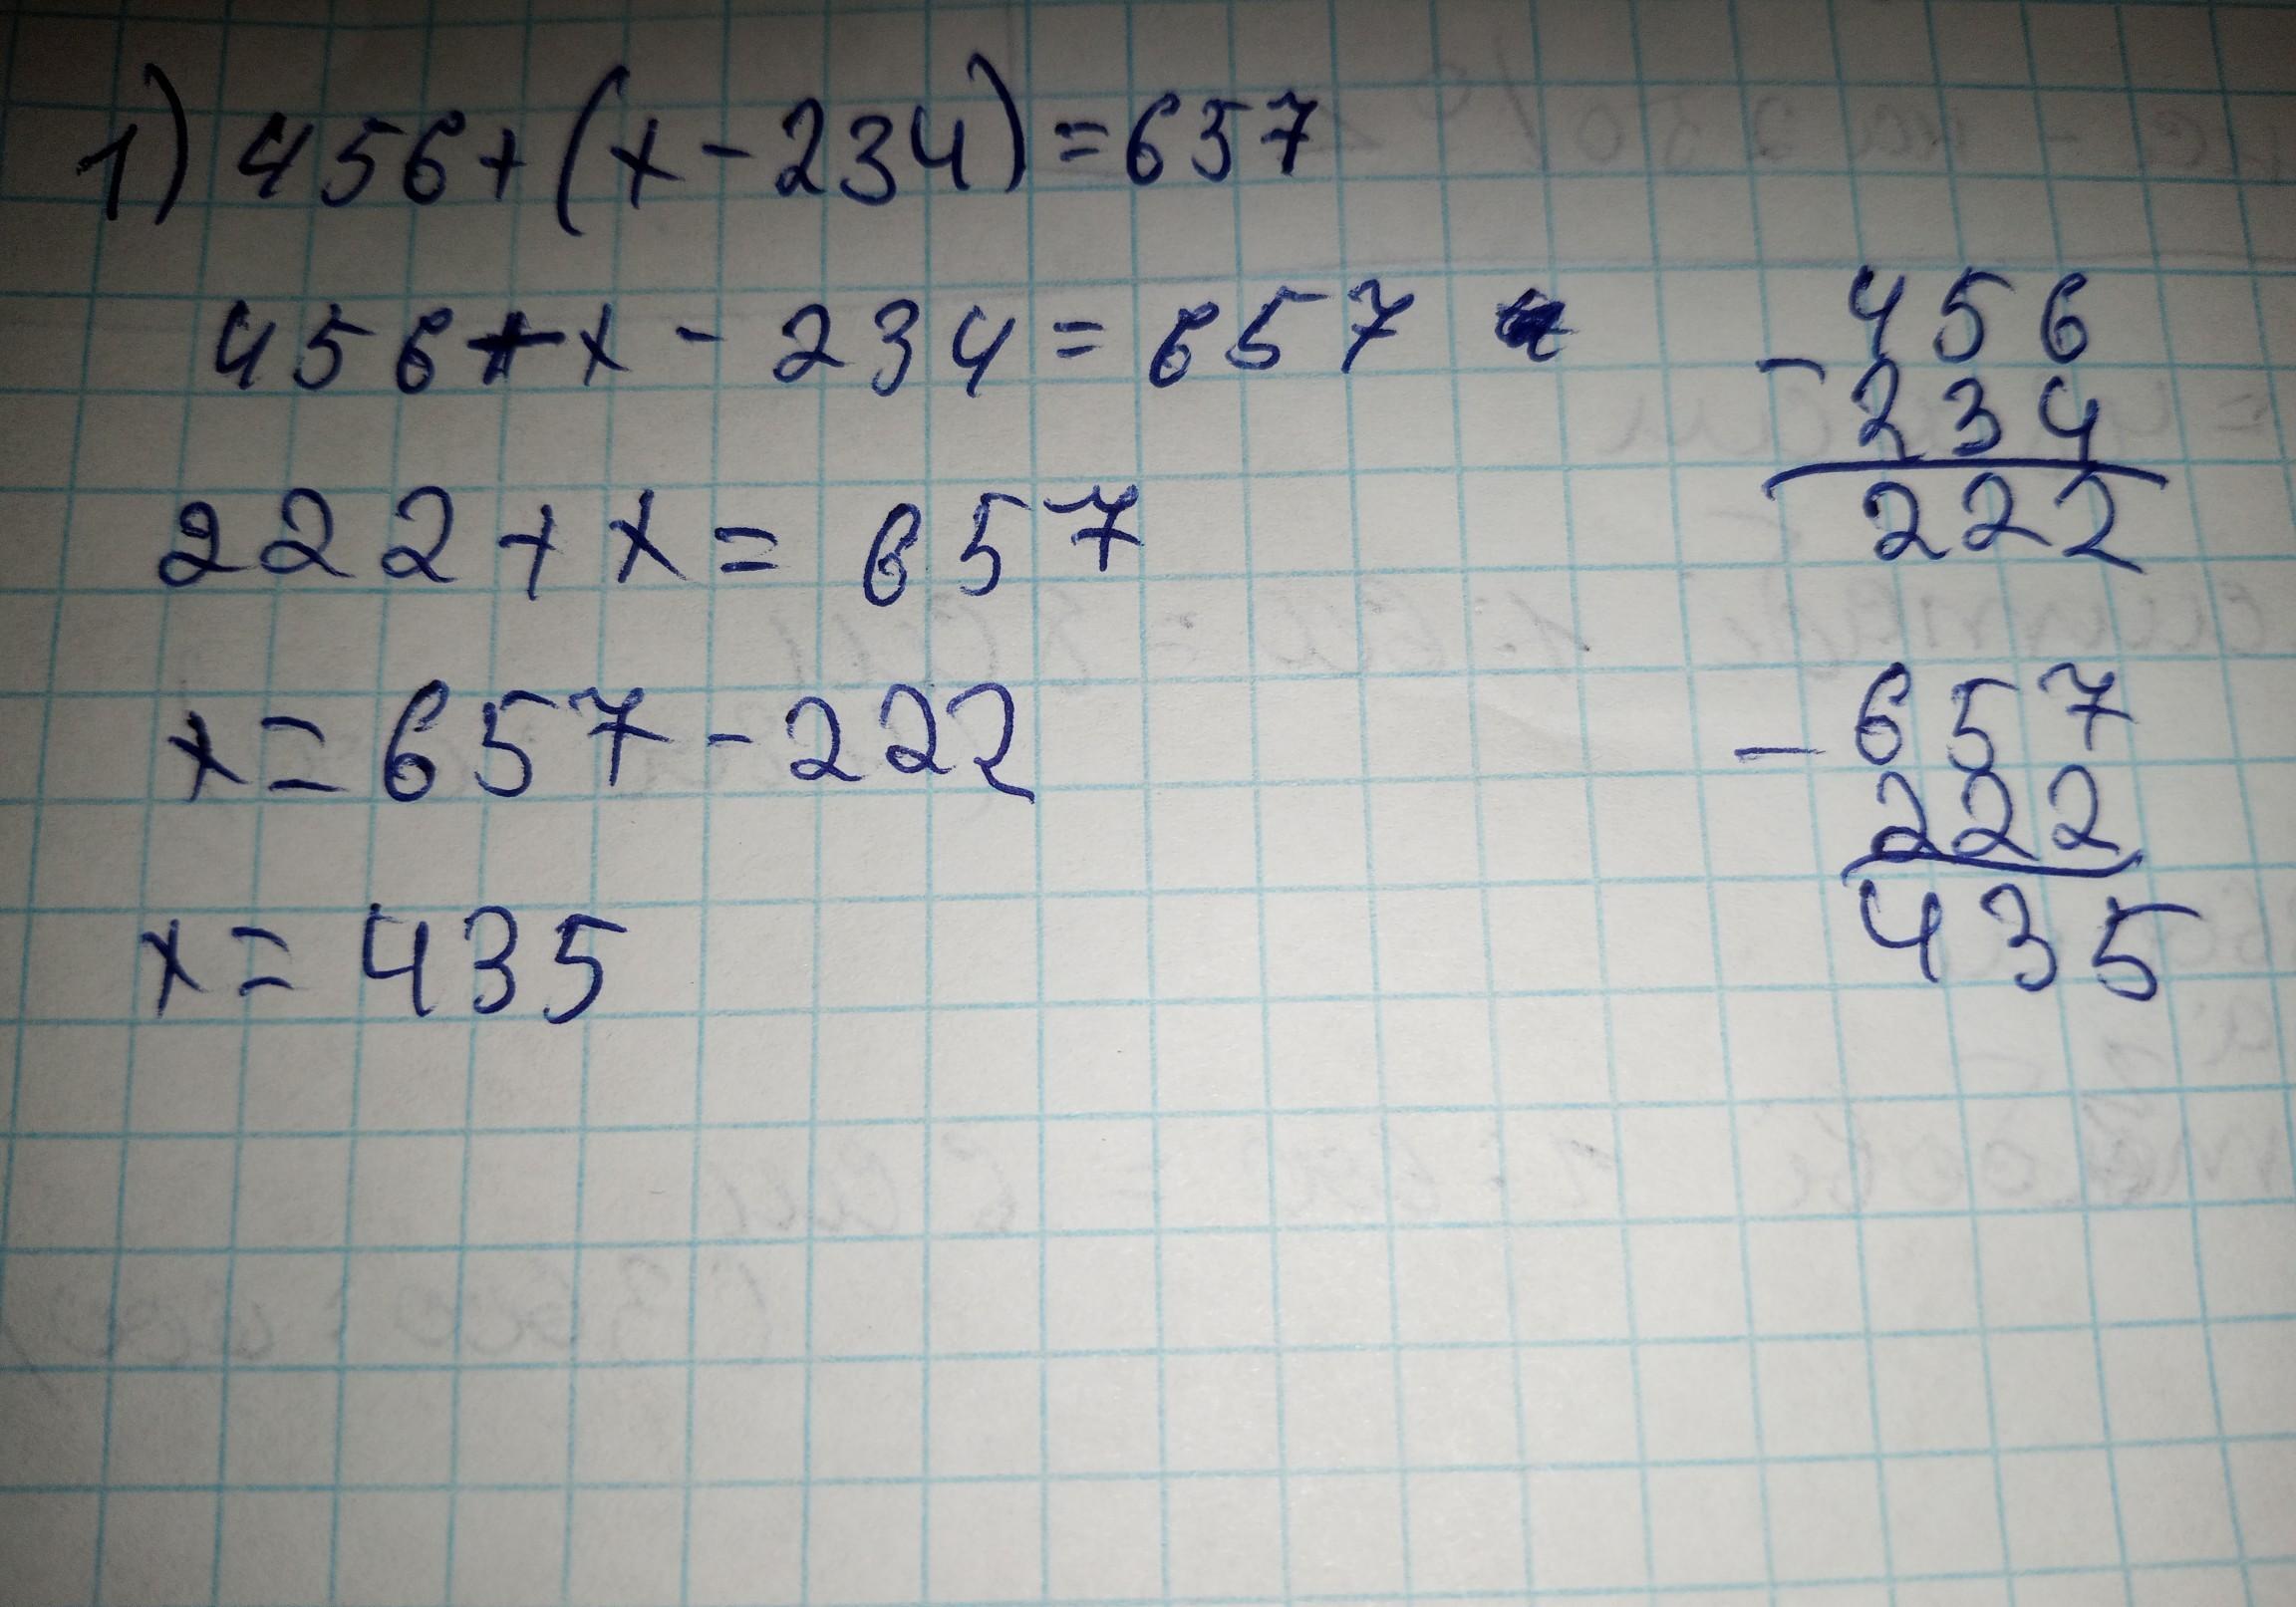 1) 456+(x-234)=657
456+x-234=657
222+x=657
x=657-222
x=435
456
-
234
222
657
-
222
435